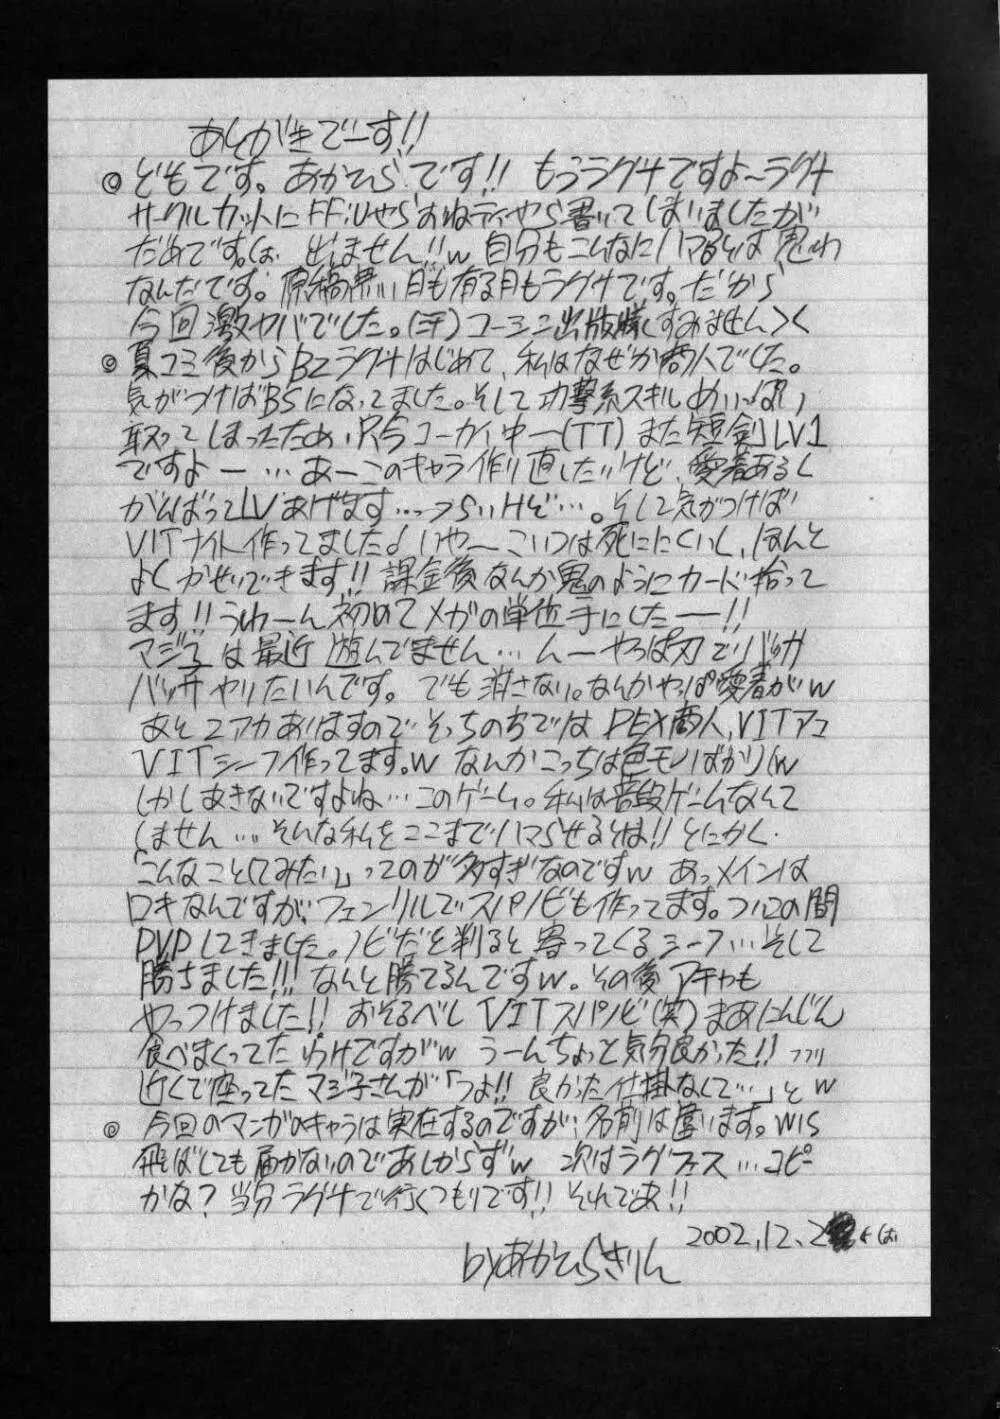 あとがきでーす!!
◎ どもです。あかひらです!! もうラグナですよ〜ラグナ
サークルカットにFFⅳやらおねティやら書いてしまいましたが
だめです。は 出ません!!w 自分もこんなにハマるとは思わ
なんだです。原稿無い日も有る日もラグナです。だから
今回激ヤバでした。(汗) コーシン出版様すみません><
◎ 夏コミ後からβ2ラグナはじめて、私はなぜか商人でした。
気がつけばBSになってました。そして攻撃系スキルめいいっぱい
取ってしまったため、只今コーカイ中ー(TT) また短剣LV1
ですよー…あーこのキャラ作り直したいけど、愛着あるし
がんばってLVあげます…つらいけど…。そして気がつけば
VITナイト作ってました♪いやーこいつは死ににくいし、ほんと
よくかせいできます!! 課金後なんか鬼のようにカード拾って
ます!! うわーん初めてメガの単位手にしたーー!!
マジ子は最近遊んでません…んーやっぱ刃でバッサ
バッサやりたいんです。でも消さない。なんかやっぱ愛着がw
あと2アカありますので そっちの方では DEX商人、VITアコ
VITシーフ作ってます。w なんかこっちは色モノばかり(w
しかしあきないですよね…このゲーム。私は普段ゲームなんて
しません…そんな私をここまでハマらせるとは!! とにかく
「こんなことしてみたい」ってのが多すぎなのですw あっメインは
ロキなんですが、フェンリルでスパノビも作ってます。ついこの間
PVPしてきました。ノビだと判ると寄ってくるシーフ…そして
勝ちました!!! なんと勝てるんですw。その後アチャも
やっつけました!! おそるべし VITスパノビ(笑) まあにんじん
食べまくってたわけですがw うーんちょっと気分良かった!! フフリ
近くで座ってたマジ子さんが「つよ!! 良かった仕掛なくて…」とw
◎ 今回のマンガのキャラは実在するのですが、名前は違います。WIS
飛ばしても届かないのであしからずw 次はラグフェス…コピー
かな? 当分ラグナで行くつもりです!! それでわ!!
2002.12.2
byあかひらきりん